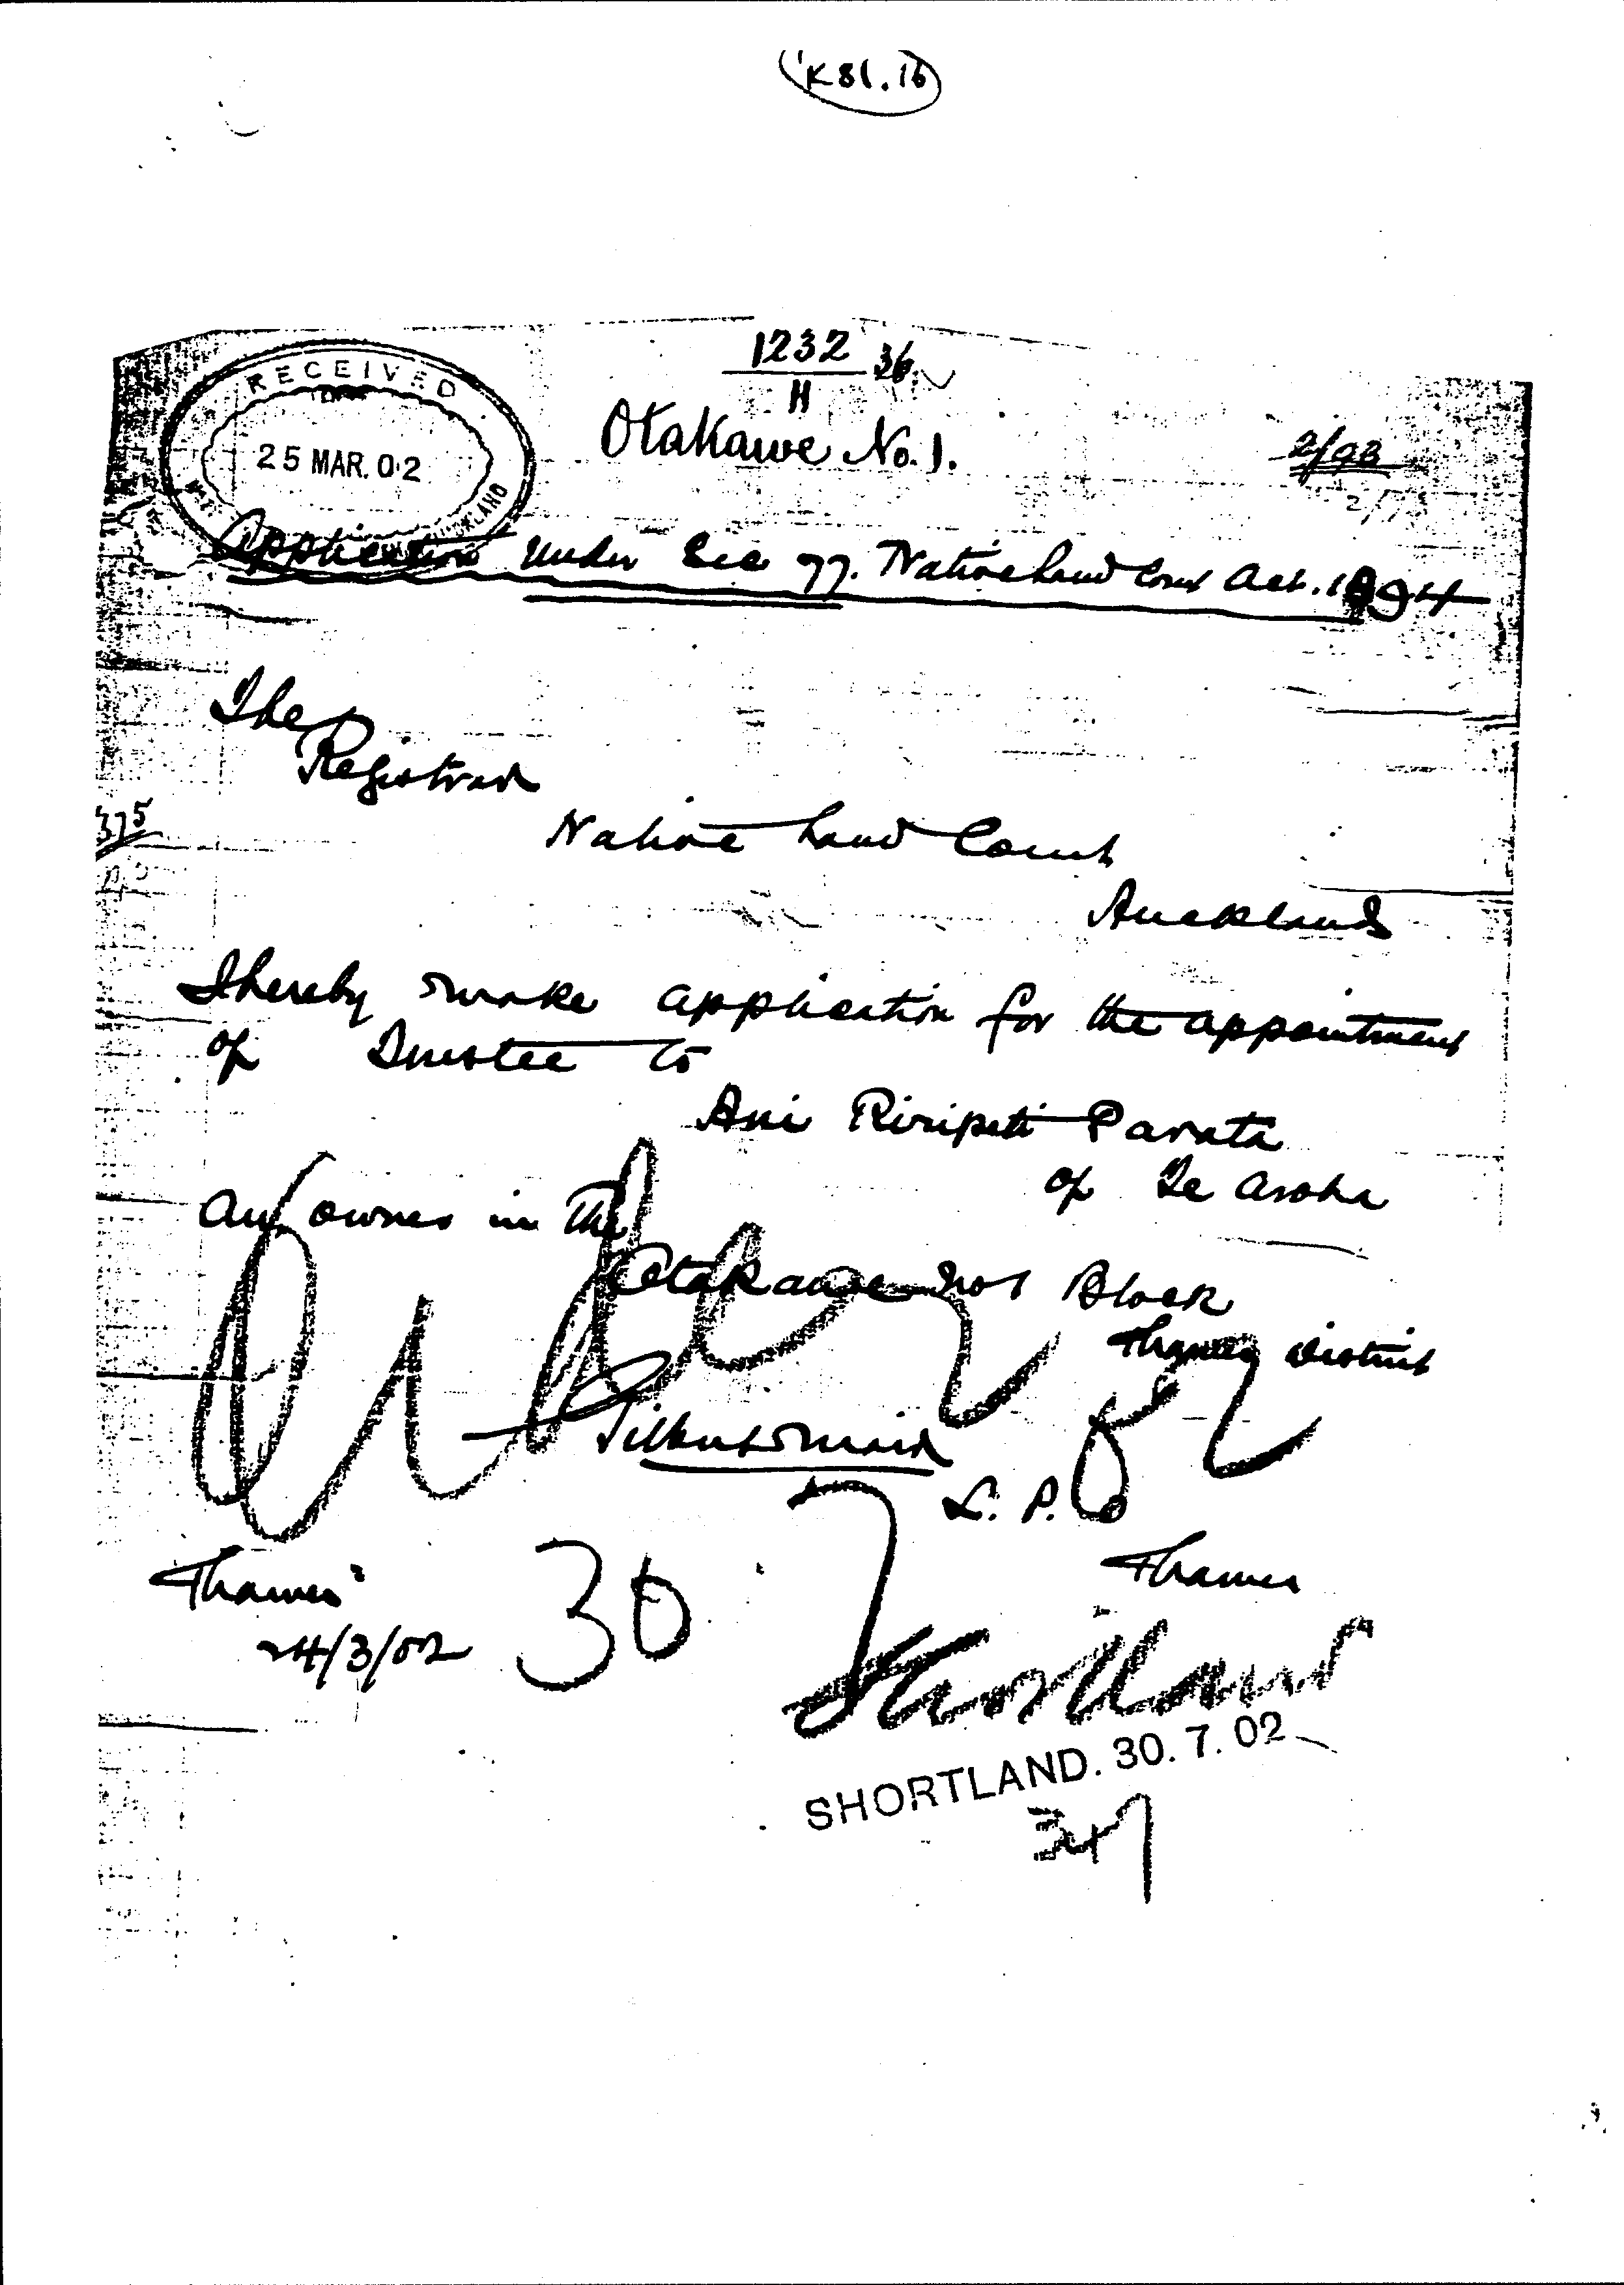 K81.16
1232 36
H
Otakawe No. 1.
2/93
RECEIVED
25 MAR. 02
AUCKLAND
Application under Sec 77. Native Land Court Act. 1894
The
Registrar
375
Native Land Court
Auckland
I hereby make application for the appointment
of Trustee to
Ani Riripeti Parata
of Te Aroha
an owner in the
Otakawe No 1 Block
Thames District
Gilbert Mair
L. P. O
Thames
Thames
24/3/02
30 7
Shortland
SHORTLAND. 30. 7. 02
347